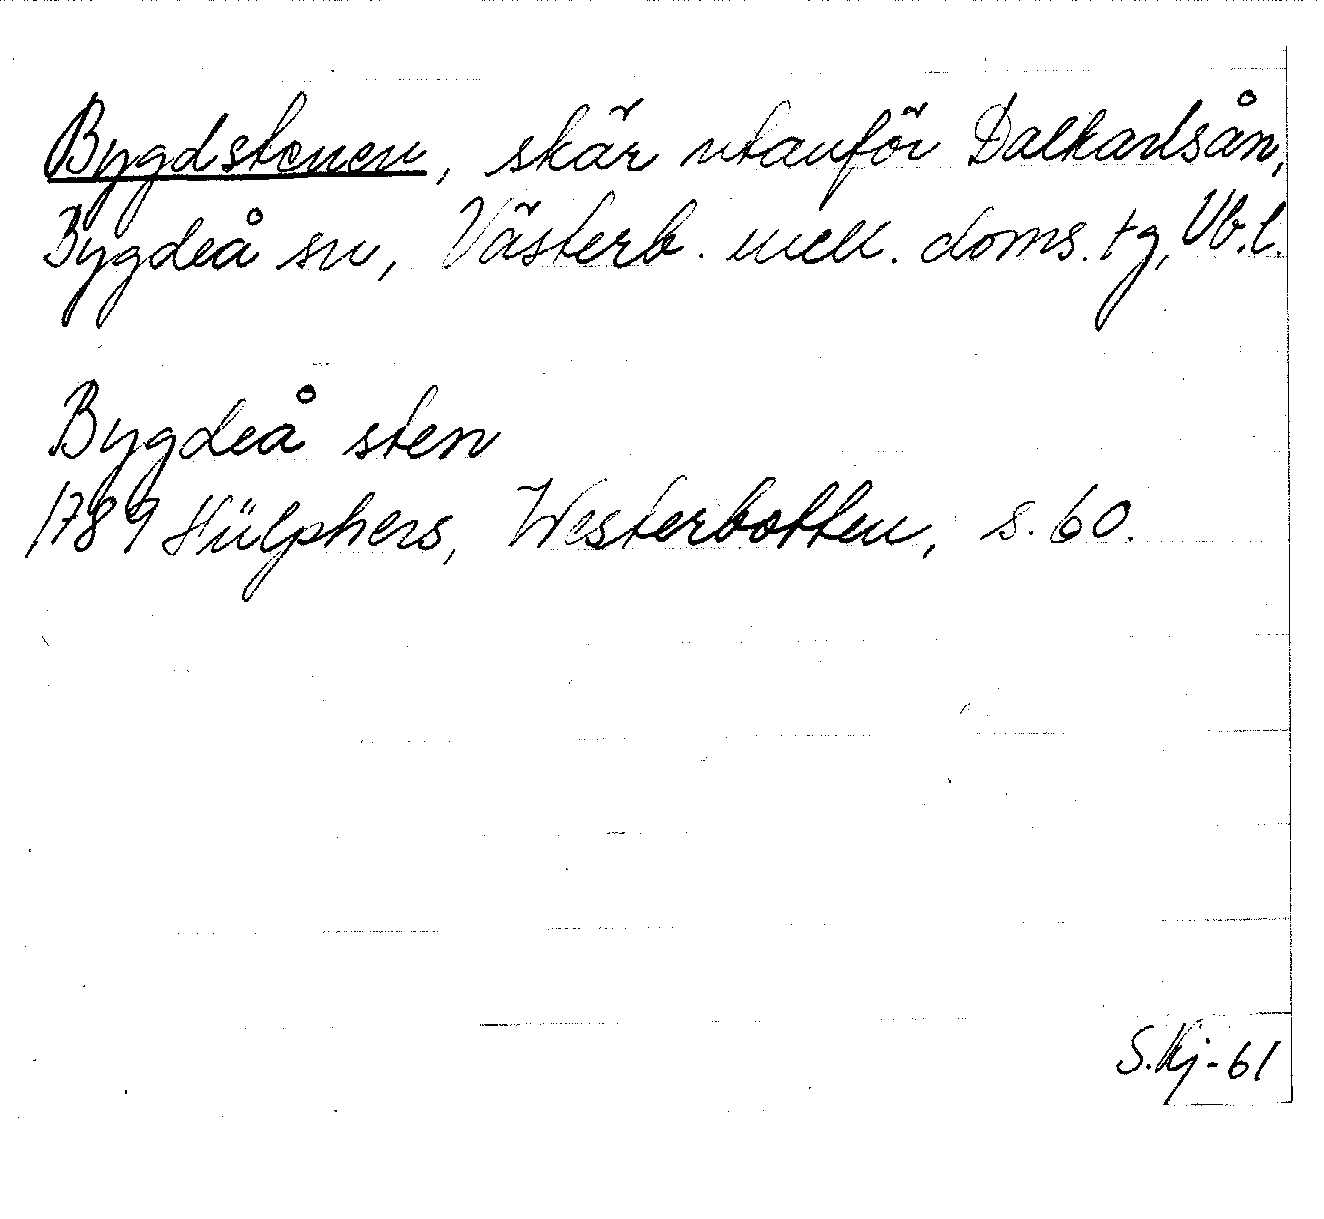 Bygdstenen, skär utanför Dalkarlsån,
Bygdeå sn, Västerb. mell. doms. tg, Vb.l.
Bygdeå sten
1789 Hülphers, Westerbotten, s. 60.
S.Kj-61